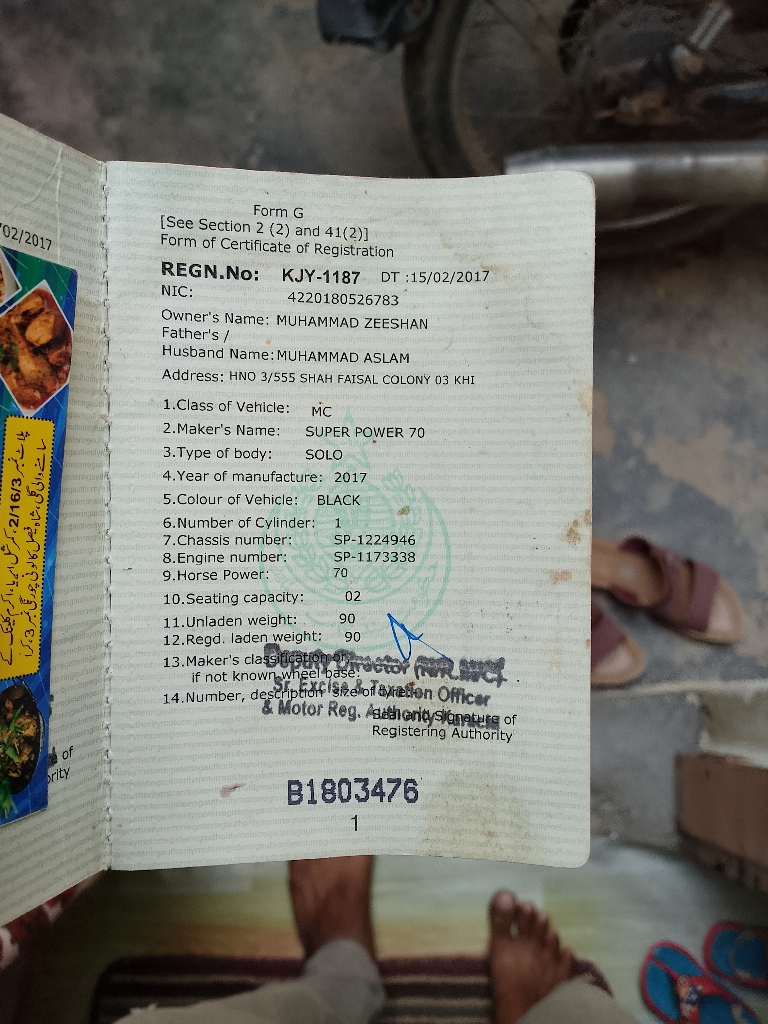 /02/2017
Form G
[See Section 2 (2) and 41(2)]
Form of Certificate of Registration
REGN.No: KJY-1187 DT :15/02/2017
NIC: 4220180526783
Owner's Name: MUHAMMAD ZEESHAN
Father's /
Husband Name: MUHAMMAD ASLAM
Address: HNO 3/555 SHAH FAISAL COLONY 03 KHI
1.Class of Vehicle: MC
2.Maker's Name: SUPER POWER 70
3.Type of body: SOLO
4.Year of manufacture: 2017
5.Colour of Vehicle: BLACK
6.Number of Cylinder: 1
7.Chassis number: SP-1224946
8.Engine number: SP-1173338
9.Horse Power: 70
10.Seating capacity: 02
11.Unladen weight: 90
12.Regd. laden weight: 90
13.Maker's classification or
if not known wheel base:
14.Number, description size of tyre:
Deputy Director
Sr. Excise & Taxation Officer
& Motor Reg. Authority Karachi
Seal and Signature of
Registering Authority
B1803476
1
of
ority